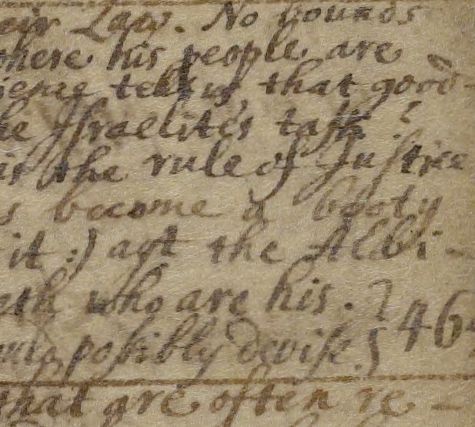 eir Law. No bounds
where his people are
ience tells us, that good
he Israelites task?
is the rule of Justice
s become a booty
it :) agt the Albi-
eth who are his. 2
possibly devise. 5 46
that are often re-